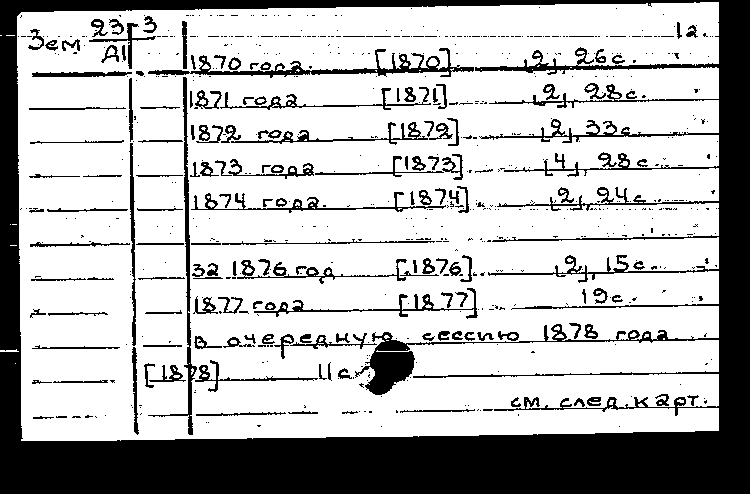 Зем 23г3/Д1
12.
1870 года. [1870] [2], 26с.
1871 года [1871] [2], 28с.
1872 года [1872] [2], 33с
1873 года. [1873] [4], 28с
1874 года. [1874] [2], 24с
за 1876 год [1876] [2], 15с.
1877 года [1877] 19с.
в очередную сессию 1878 года
[1878] 11с
см. след. карт.